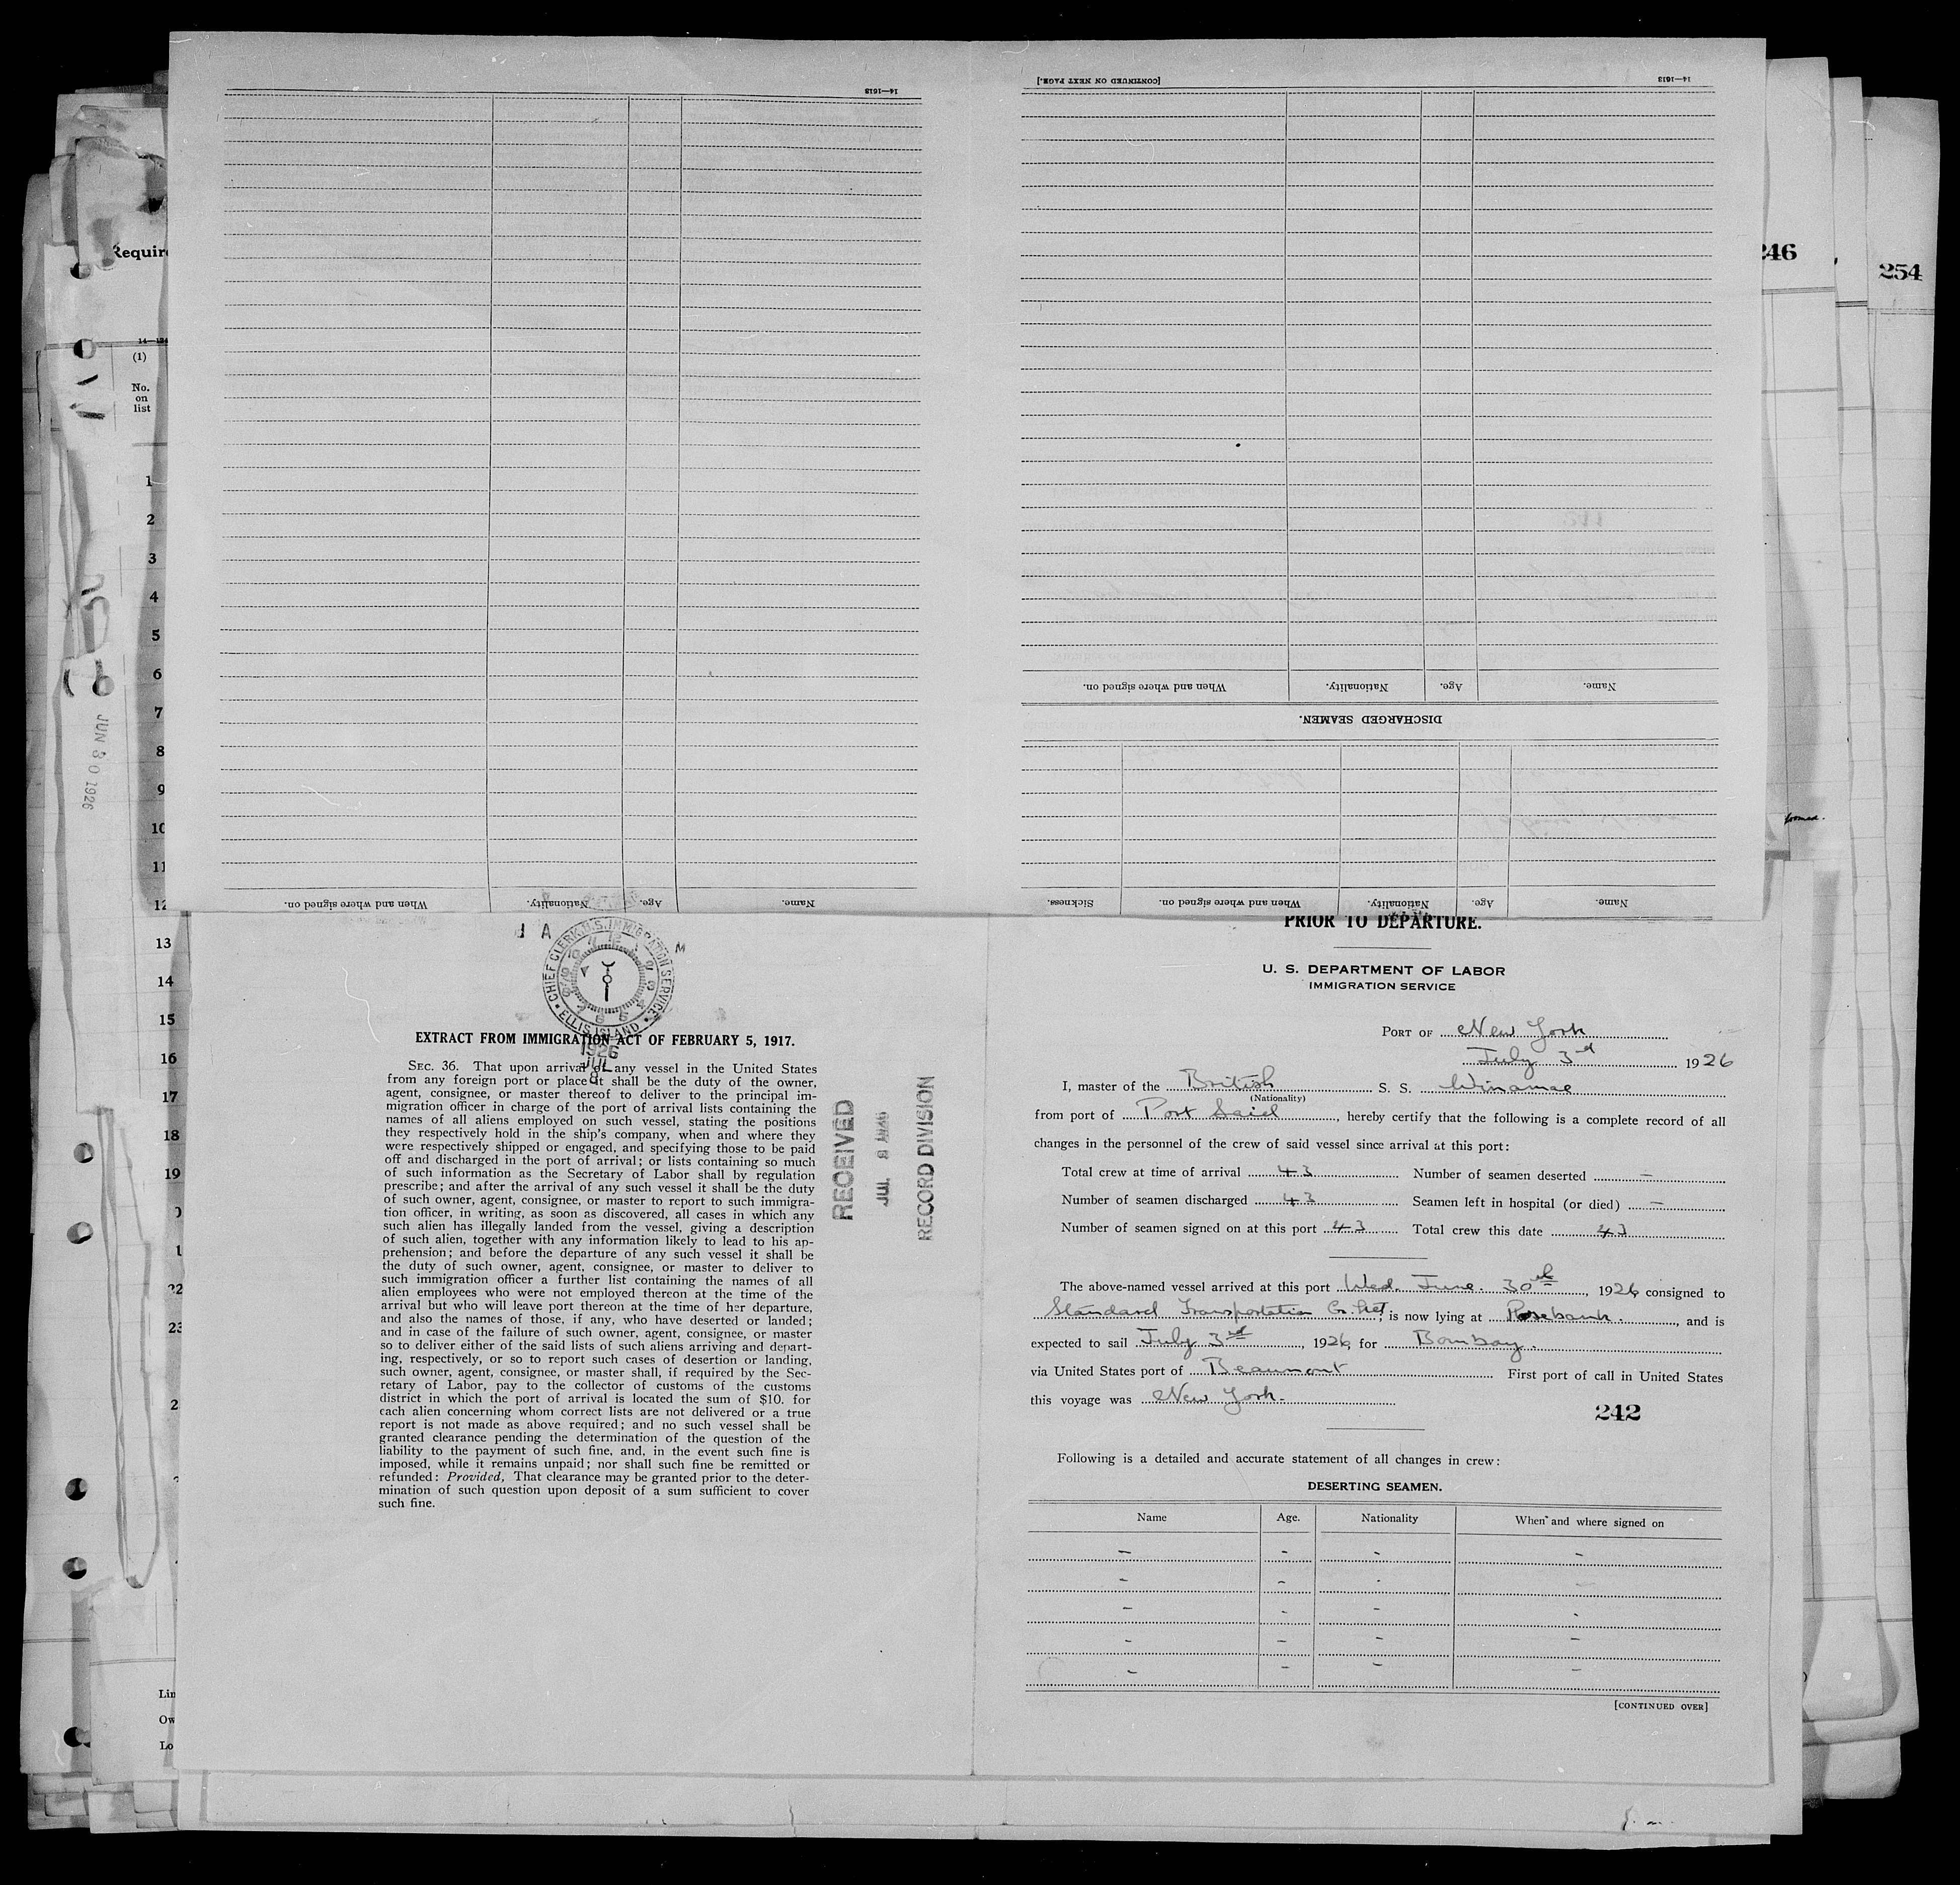 14—1613
When and where signed on. Nationality. Age. Name.
[CONTINUED ON NEXT PAGE.] 14—1613
When and where signed on. Nationality. Age. Name.
DISCHARGED SEAMEN.
Sickness. When and where signed on. Nationality. Age. Name.
246
254
(1)
No.
on
list
1
2
3
4
5
6
7
8
9
10
11
12
13
14
15
16
17
18
19
22
23
JUN 30 1926
CHIEF CLERK, U.S. IMMIGRATION SERVICE
ELLIS ISLAND
1926
JUL
8
EXTRACT FROM IMMIGRATION ACT OF FEBRUARY 5, 1917.
SEC. 36. That upon arrival of any vessel in the United States
from any foreign port or place it shall be the duty of the owner,
agent, consignee, or master thereof to deliver to the principal im-
migration officer in charge of the port of arrival lists containing the
names of all aliens employed on such vessel, stating the positions
they respectively hold in the ship's company, when and where they
were respectively shipped or engaged, and specifying those to be paid
off and discharged in the port of arrival; or lists containing so much
of such information as the Secretary of Labor shall by regulation
prescribe; and after the arrival of any such vessel it shall be the duty
of such owner, agent, consignee, or master to report to such immigra-
tion officer, in writing, as soon as discovered, all cases in which any
such alien has illegally landed from the vessel, giving a description
of such alien, together with any information likely to lead to his ap-
prehension; and before the departure of any such vessel it shall be
the duty of such owner, agent, consignee, or master to deliver to
such immigration officer a further list containing the names of all
alien employees who were not employed thereon at the time of the
arrival but who will leave port thereon at the time of her departure,
and also the names of those, if any, who have deserted or landed;
and in case of the failure of such owner, agent, consignee, or master
so to deliver either of the said lists of such aliens arriving and depart-
ing, respectively, or so to report such cases of desertion or landing,
such owner, agent, consignee, or master shall, if required by the Sec-
retary of Labor, pay to the collector of customs of the customs
district in which the port of arrival is located the sum of $10. for
each alien concerning whom correct lists are not delivered or a true
report is not made as above required; and no such vessel shall be
granted clearance pending the determination of the question of the
liability to the payment of such fine, and, in the event such fine is
imposed, while it remains unpaid; nor shall such fine be remitted or
refunded: Provided, That clearance may be granted prior to the deter-
mination of such question upon deposit of a sum sufficient to cover
such fine.
RECEIVED
JUL 8 1926
RECORD DIVISION
PRIOR TO DEPARTURE.
U. S. DEPARTMENT OF LABOR
IMMIGRATION SERVICE
PORT OF New York
July 3rd 1926
I, master of the British S. S. Winamac
(Nationality)
from port of Port Said, hereby certify that the following is a complete record of all
changes in the personnel of the crew of said vessel since arrival at this port:
Total crew at time of arrival 43 Number of seamen deserted -
Number of seamen discharged 43 Seamen left in hospital (or died) -
Number of seamen signed on at this port 43 Total crew this date 43
The above-named vessel arrived at this port Wed. June. 30th, 1926, consigned to
Standard Transportation Co. Ltd, is now lying at Rosebank., and is
expected to sail July 3rd, 1926, for Bombay.
via United States port of Beaumont First port of call in United States
this voyage was New York-
242
Following is a detailed and accurate statement of all changes in crew:
DESERTING SEAMEN.
Name Age. Nationality When and where signed on
- - - -
- - - -
- - - -
- - - -
- - - -
[CONTINUED OVER]